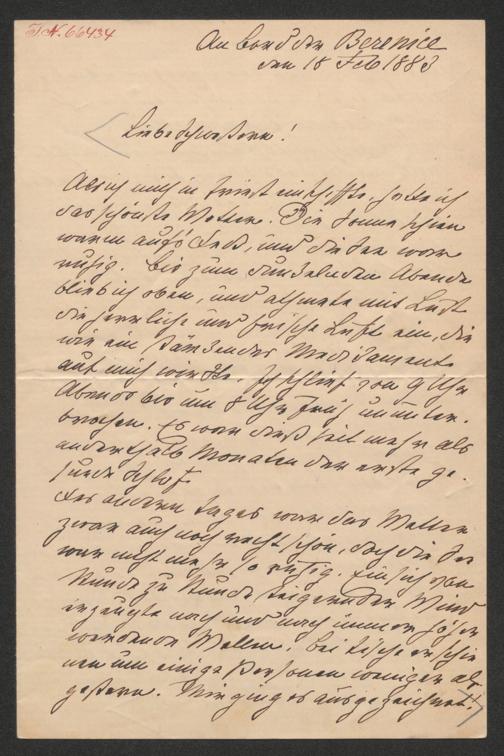 J.N. 66434
An Bord der Berenice
den 18 Feb 1883
Liebe Schwestern!
Als ich mich in Triest einschiffte, hatte ich
das schönste Wetter. Die Sonne schien
warm aufs Deck, und die See war
ruhig. Bis zum dunkelnden Abende
blieb ich oben, und athmete mit Lust
die herrliche und frische Luft ein, die
wie ein stärkendes Medicament
auf mich wirkte. Ich schlief von 9 Uhr
Abends bis um 8 Uhr früh ununter-
brochen. Es war dieß seit mehr als
anderthalb Monaten der erste ge-
sunde Schlaf.
Des andern Tages war das Wetter
zwar auch noch recht schön, doch die See
war nicht mehr so ruhig. Ein sich von
Stunde zu Stunde steigernder Wind
erzeugte nach und nach immer höher
werdende Wellen. Bei Tische erschie-
nen um einige Personen weniger als
gestern. Mir ging es ausgezeichnet.